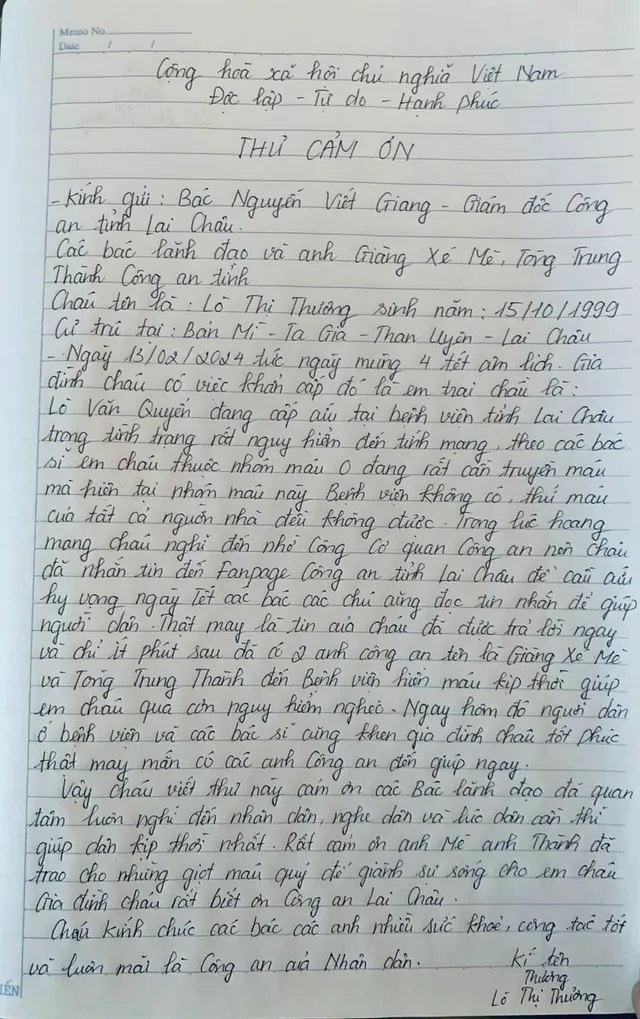 Memo No.
Date / /
Cộng hoà xã hội chủ nghĩa Việt Nam
Độc lập - Tự do - Hạnh phúc
THƯ CẢM ƠN
- Kính gửi : Bác Nguyễn Viết Giang - Giám đốc Công
an tỉnh Lai Châu.
Các bác lãnh đạo và anh Giàng Xé Mè, Tòng Trung
Thành Công an tỉnh
Cháu tên là : Lò Thị Thương sinh năm : 15/10/1999
Cư trú tại : Bản Mì - Ta Gia - Than Uyên - Lai Châu
- Ngày 13/02/2024 tức ngày mùng 4 tết âm lịch. Gia
đình cháu có việc khẩn cấp đó là em trai cháu là :
Lò Văn Quyến đang cấp cứu tại bệnh viện tỉnh Lai Châu
trong tình trạng rất nguy hiểm đến tính mạng, theo các bác
sĩ em cháu thuộc nhóm máu O đang rất cần truyền máu
mà hiện tại nhóm máu này Bệnh viện không có, thử máu
của tất cả người nhà đều không được. Trong lúc hoang
mang cháu nghĩ đến nhờ Công Cơ quan Công an nên cháu
đã nhắn tin đến Fanpage Công an tỉnh Lai Châu để cầu cứu
hy vọng ngày Tết các bác các chú cũng đọc tin nhắn để giúp
người dân. Thật may là tin của cháu đã được trả lời ngay
và chỉ ít phút sau đã có 2 anh công an tên là Giàng Xé Mè
và Tòng Trung Thành đến Bệnh viện hiến máu kịp thời giúp
em cháu qua cơn nguy hiểm nghèo. Ngay hôm đó người dân
ở bệnh viện và các bác sĩ cũng khen gia đình cháu tốt phúc
thật may mắn có các anh Công an đến giúp ngay.
Vậy cháu viết thư này cảm ơn các Bác lãnh đạo đã quan
tâm luôn nghĩ đến nhân dân, nghe dân và lúc dân cần thì
giúp dân kịp thời nhất. Rất cảm ơn anh Mè anh Thành đã
trao cho những giọt máu quý để giành sự sống cho em cháu
Gia đình cháu rất biết ơn Công an Lai Châu.
Cháu kính chúc các bác các anh nhiều sức khoẻ, công tác tốt
và luôn mãi là Công an của Nhân dân.
Kí tên
Thương
Lò Thị Thương